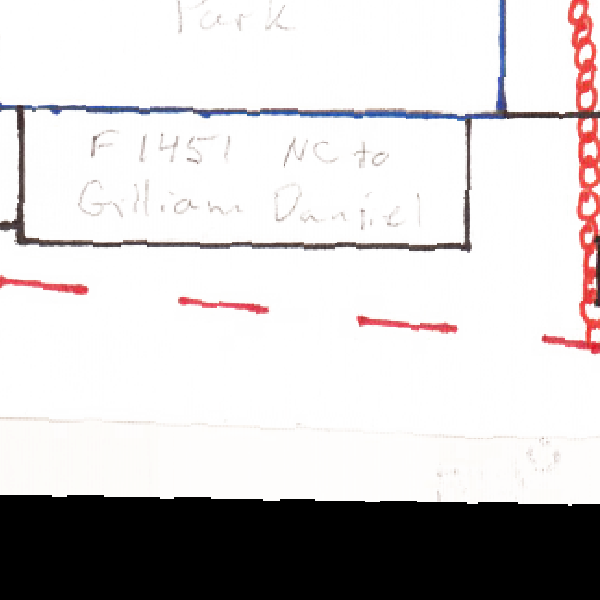 Park
F 1451 NC to
Gilliam Daniel